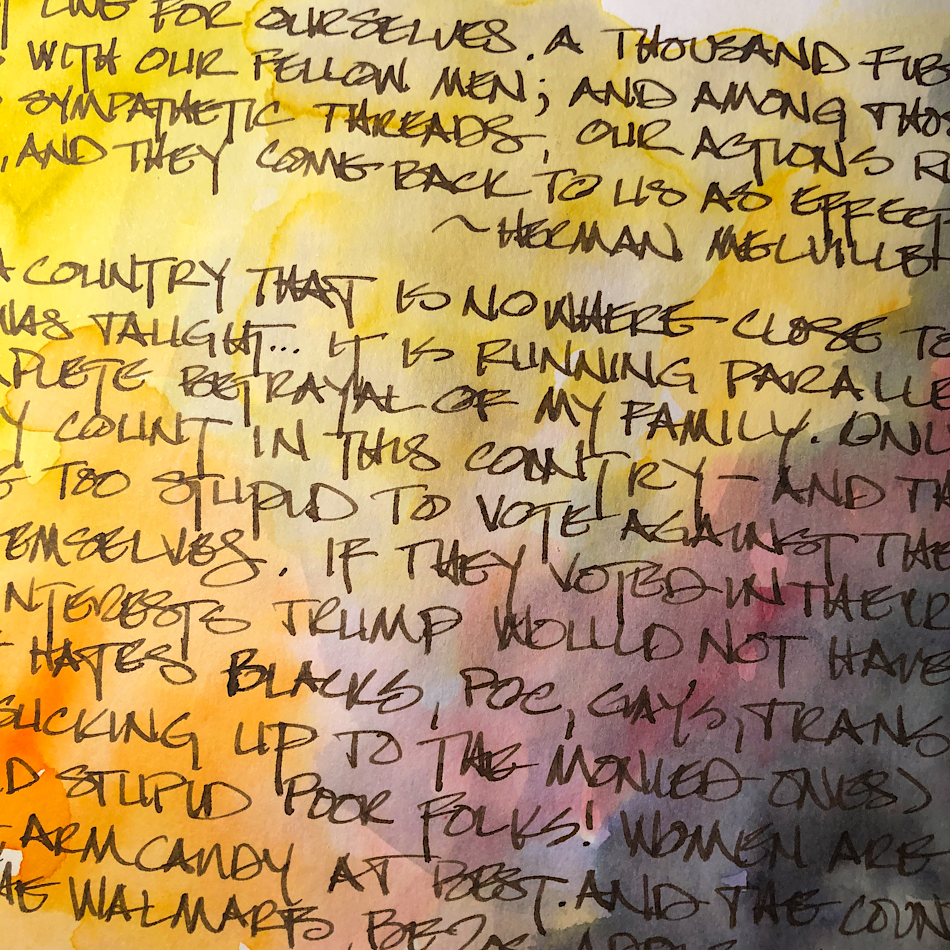 LIVE FOR OURSELVES. A THOUSAND FIB
WITH OUR FELLOW MEN; AND AMONG THOS
SYMPATHETIC THREADS, OUR ACTIONS R
, AND THEY COME BACK TO US AS EFFECT
~HERMAN MELVILLE
A COUNTRY THAT IS NOWHERE CLOSE TO
WAS TAUGHT... IT IS RUNNING PARALLE
PLETE BETRAYAL OF MY FAMILY. ONL
Y COUNT IN THIS COUNTRY – AND TH
TOO STUPID TO VOTE AGAINST THE
EMSELVES. IF THEY VOTED IN THEIR
INTERESTS TRUMP WOULD NOT HAVE
HATES BLACKS, POC, GAYS, TRANS
SUCKING UP TO THE MONIED ONES)
D STUPID POOR FOLKS! WOMEN ARE
ARM CANDY AT BEST. AND THE COUN
HE WALMARTS